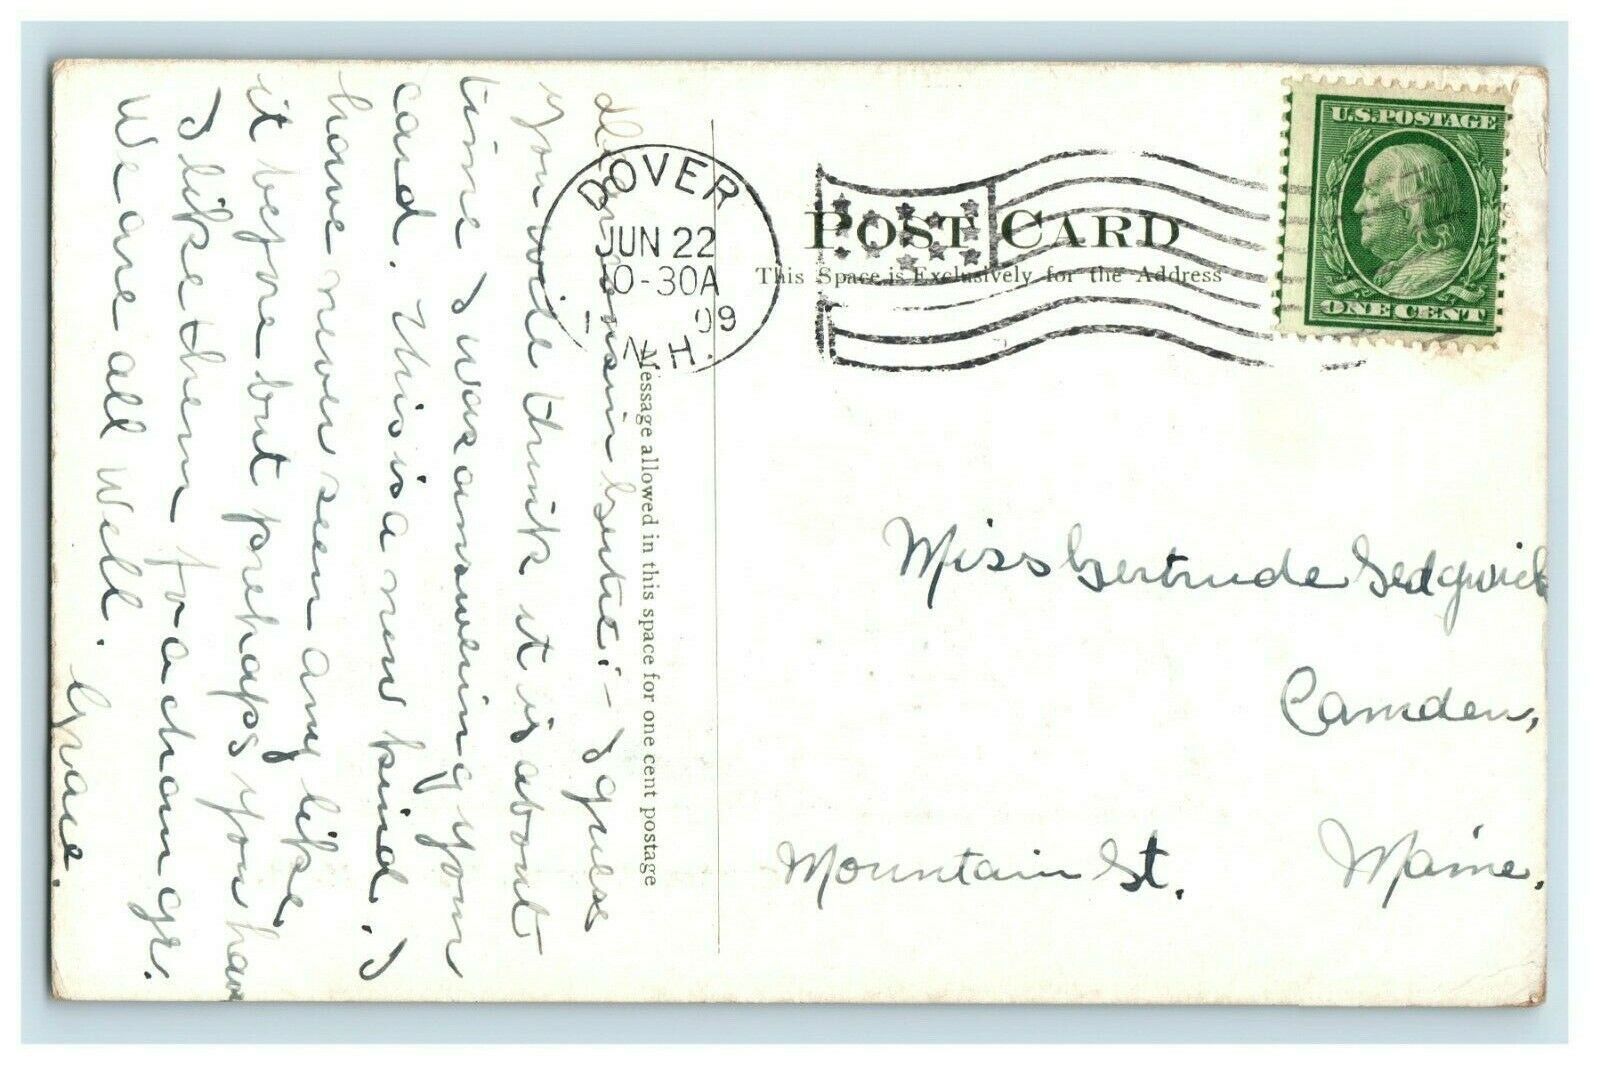 Dear cousin Gertie:- I guess
you will think it is about
time I was answering your
card. This is a new kind. I
have never seen any like
it before but prehaps you have
I like them for a change.
We are all well.
Grace.
Message allowed in this space for one cent postage
DOVER
JUN 22
0-30A
09
N.H.
POST CARD
This Space is Exclusively for the Address
U.S. POSTAGE
ONE CENT
Miss Gertrude Sedgwick
Camden,
Mountain St. Maine.